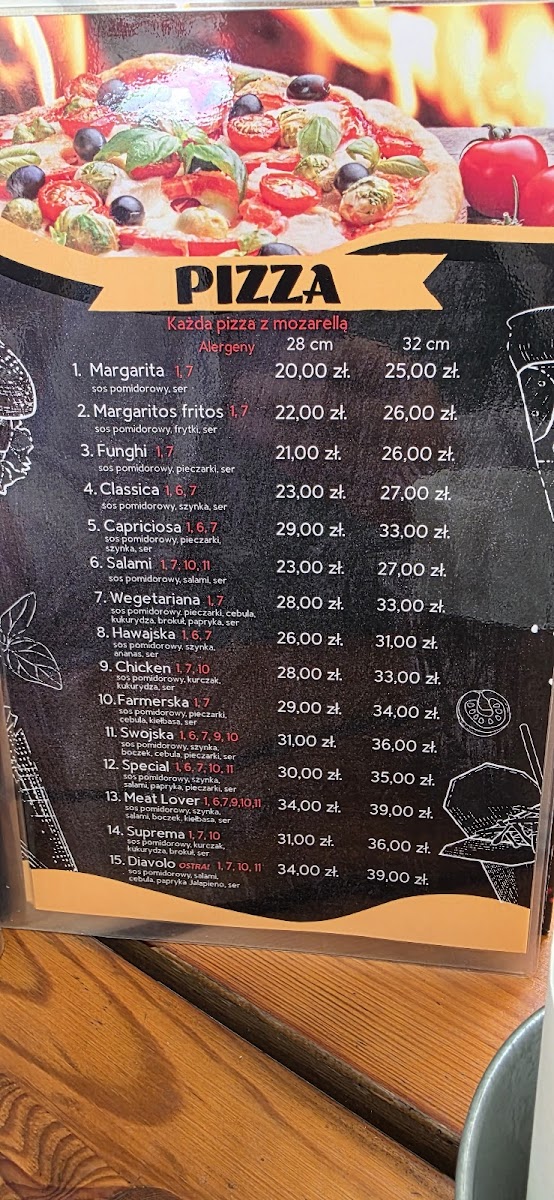 PIZZA
Każda pizza z mozarellą
Alergeny 28 cm 32 cm
1. Margarita 1, 7 20,00 zł. 25,00 zł.
sos pomidorowy, ser
2. Margaritos fritos 1, 7 22,00 zł. 26,00 zł.
sos pomidorowy, frytki, ser
3. Funghi 1, 7 21,00 zł. 26,00 zł.
sos pomidorowy, pieczarki, ser
4. Classica 1, 6, 7 23,00 zł. 27,00 zł.
sos pomidorowy, szynka, ser
5. Capriciosa 1, 6, 7 29,00 zł. 33,00 zł.
sos pomidorowy, pieczarki,
szynka, ser
6. Salami 1, 7, 10, 11 23,00 zł. 27,00 zł.
sos pomidorowy, salami, ser
7. Wegetariana 1, 7 28,00 zł. 33,00 zł.
sos pomidorowy, pieczarki, cebula,
kukurydza, brokuł, papryka, ser
8. Hawajska 1, 6, 7 26,00 zł. 31,00 zł.
sos pomidorowy, szynka,
ananas, ser
9. Chicken 1, 7, 10 28,00 zł. 33,00 zł.
sos pomidorowy, kurczak,
kukurydza, ser
10. Farmerska 1, 7 29,00 zł. 34,00 zł.
sos pomidorowy, pieczarki,
cebula, kiełbasa, ser
11. Swojska 1, 6, 7, 9, 10 31,00 zł. 36,00 zł.
sos pomidorowy, szynka,
boczek, cebula, pieczarki, ser
12. Special 1, 6, 7, 10, 11 30,00 zł. 35,00 zł.
sos pomidorowy, szynka,
salami, papryka, pieczarki, ser
13. Meat Lover 1, 6,7,9,10,11 34,00 zł. 39,00 zł.
sos pomidorowy, szynka,
salami, boczek, kiełbasa, ser
14. Suprema 1, 7, 10 31,00 zł. 36,00 zł.
sos pomidorowy, kurczak,
kukurydza, brokuł, ser
15. Diavolo OSTRA! 1, 7, 10, 11 34,00 zł. 39,00 zł.
sos pomidorowy, salami,
cebula, papryka Jalapieno, ser